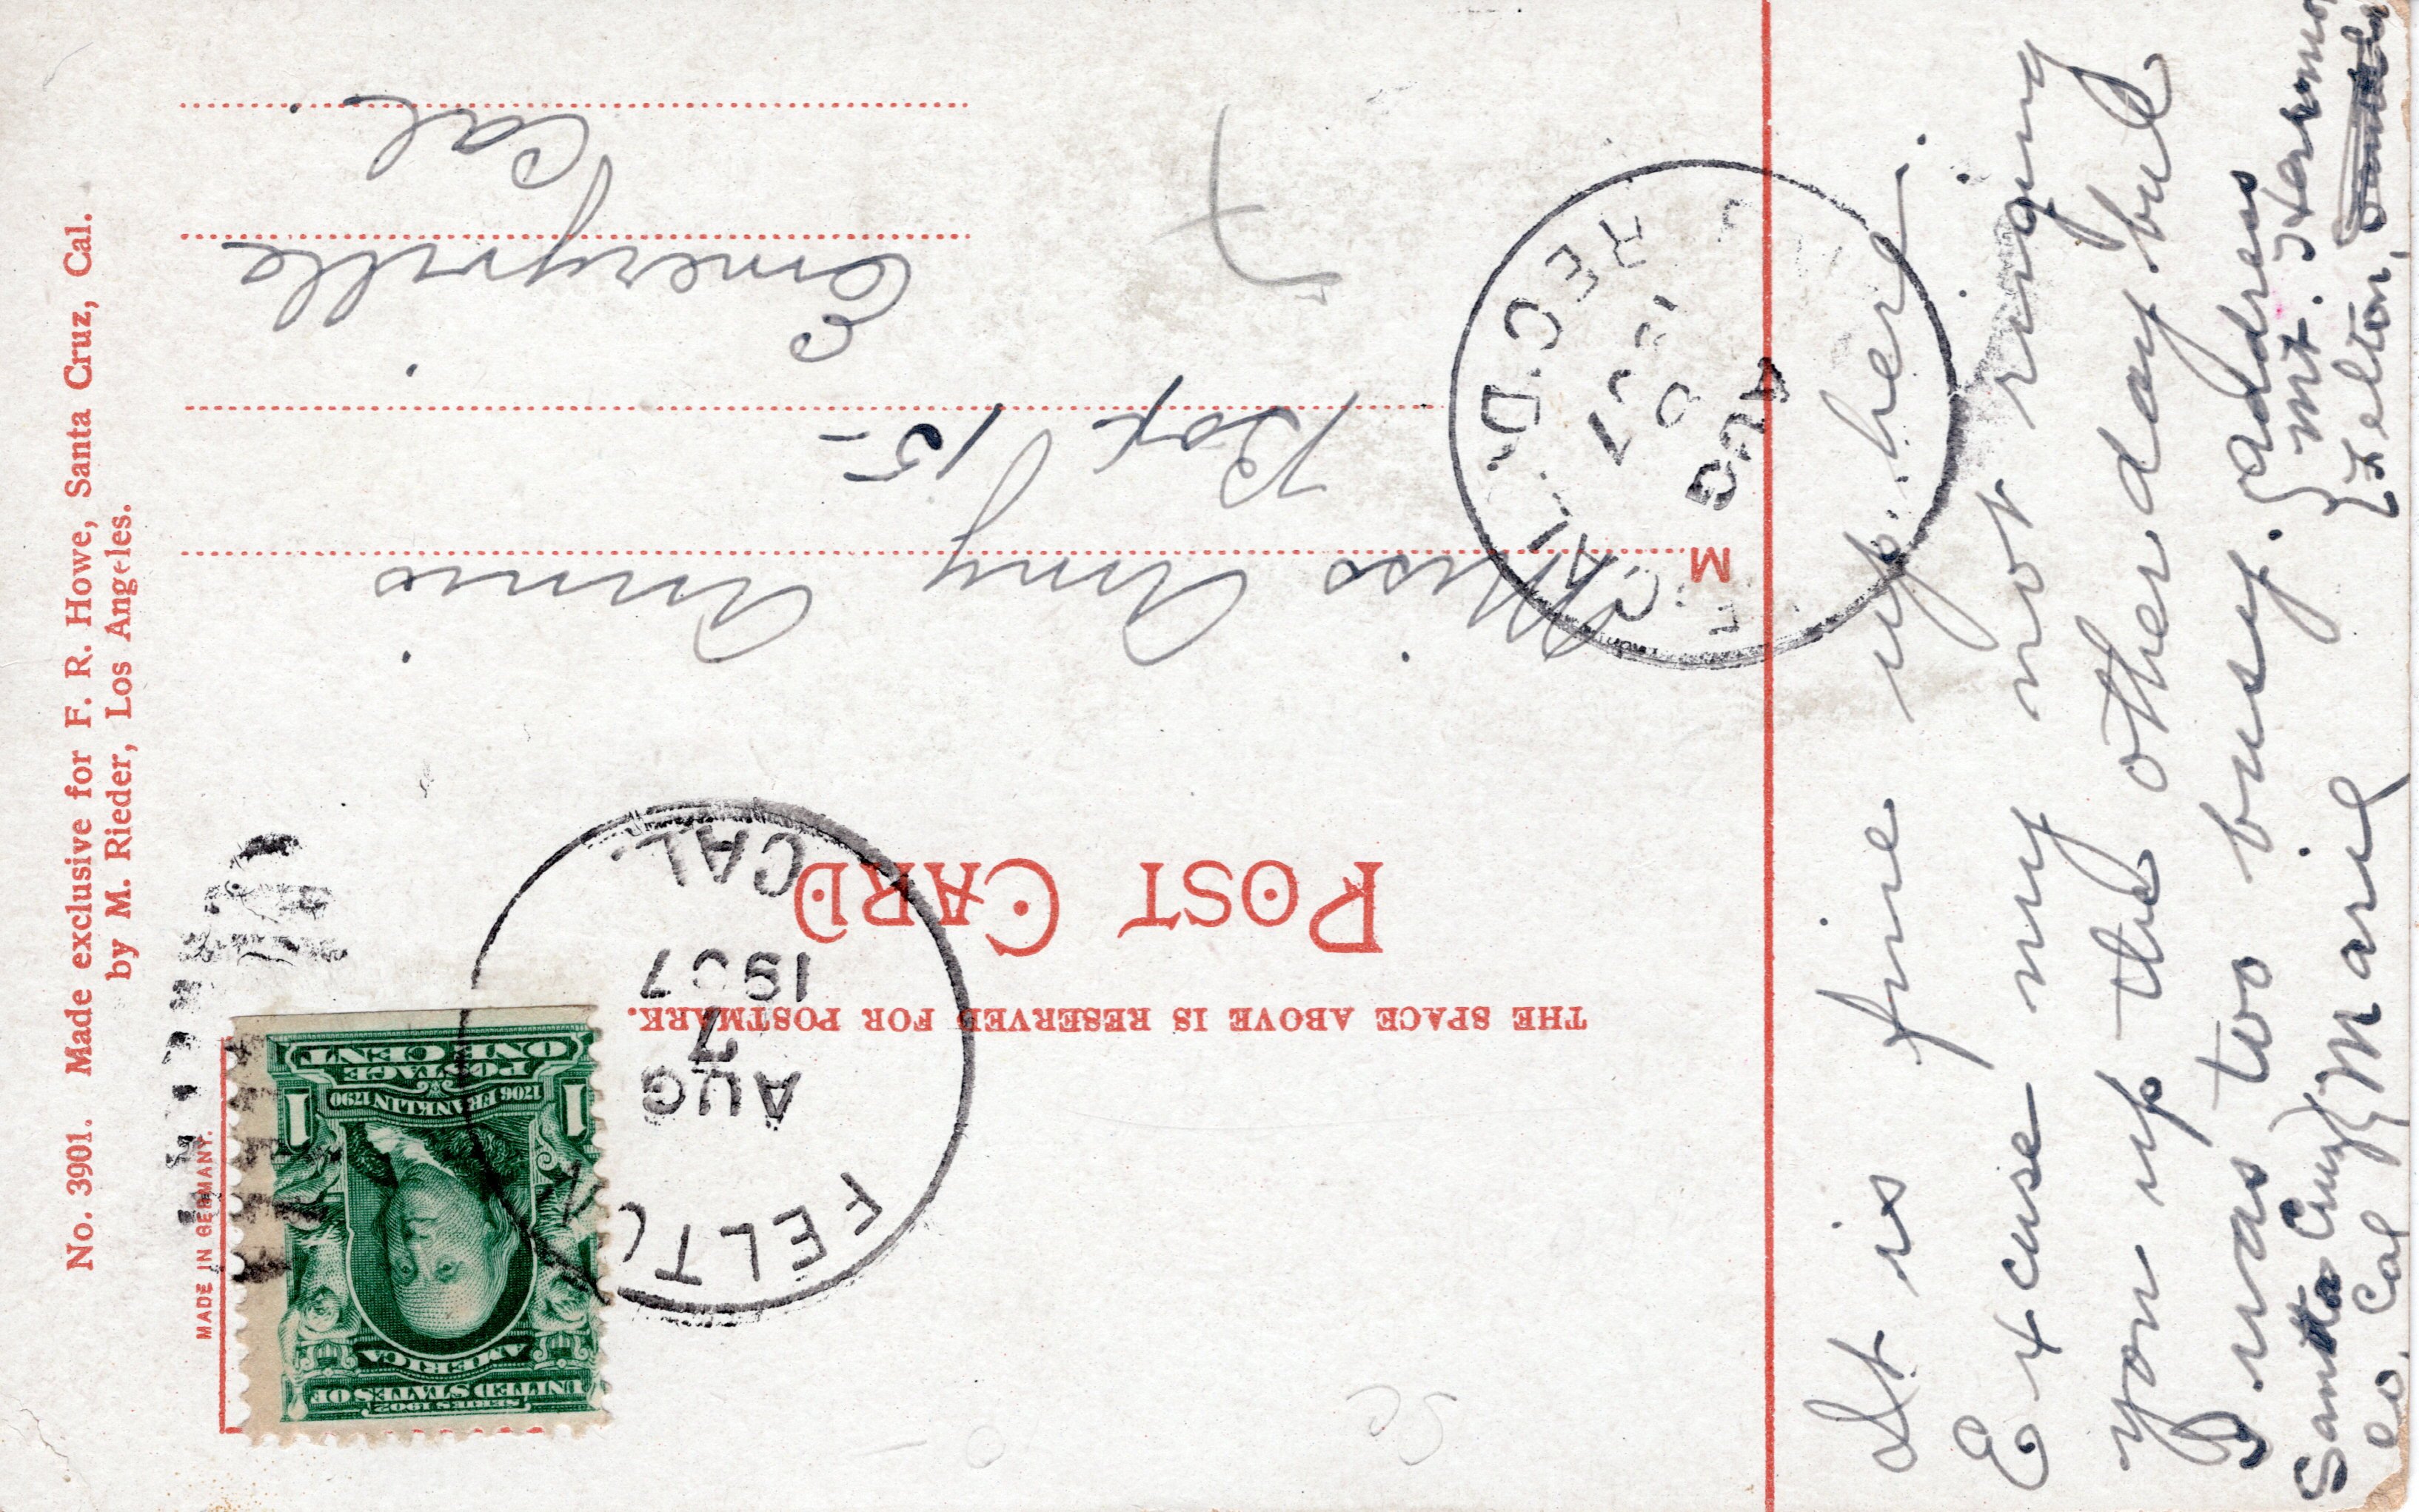 No. 3901. Made exclusive for F. R. Howe, Santa Cruz, Cal.
by M. Rieder, Los Angeles.
MADE IN GERMANY.
SERIES 1902
UNITED STATES OF
AMERICA
1706 FRANKLIN 1790
1 1
POSTAGE
ONE CENT
FELTON
AUG
7
1907
CAL.
THE SPACE ABOVE IS RESERVED FOR POSTMARK.
POST CARD
M
Miss Amy Annis
Box 15
Emeryville
Cal
AUG
CAL. REC'D.
It is fine up here.
Excuse my not ringing
you up the other day but
I was too busy.
address
Mt. Hermon
Felton,
Santa Cruz
Co. Cal
Marie